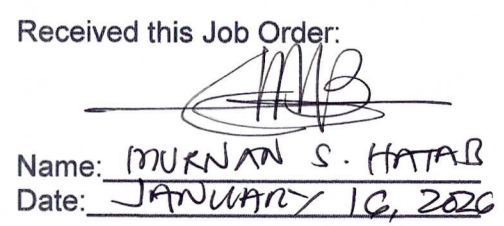 Received this Job Order:
Name: MURNAN S. HATAB
Date: JANUARY 16, 2026